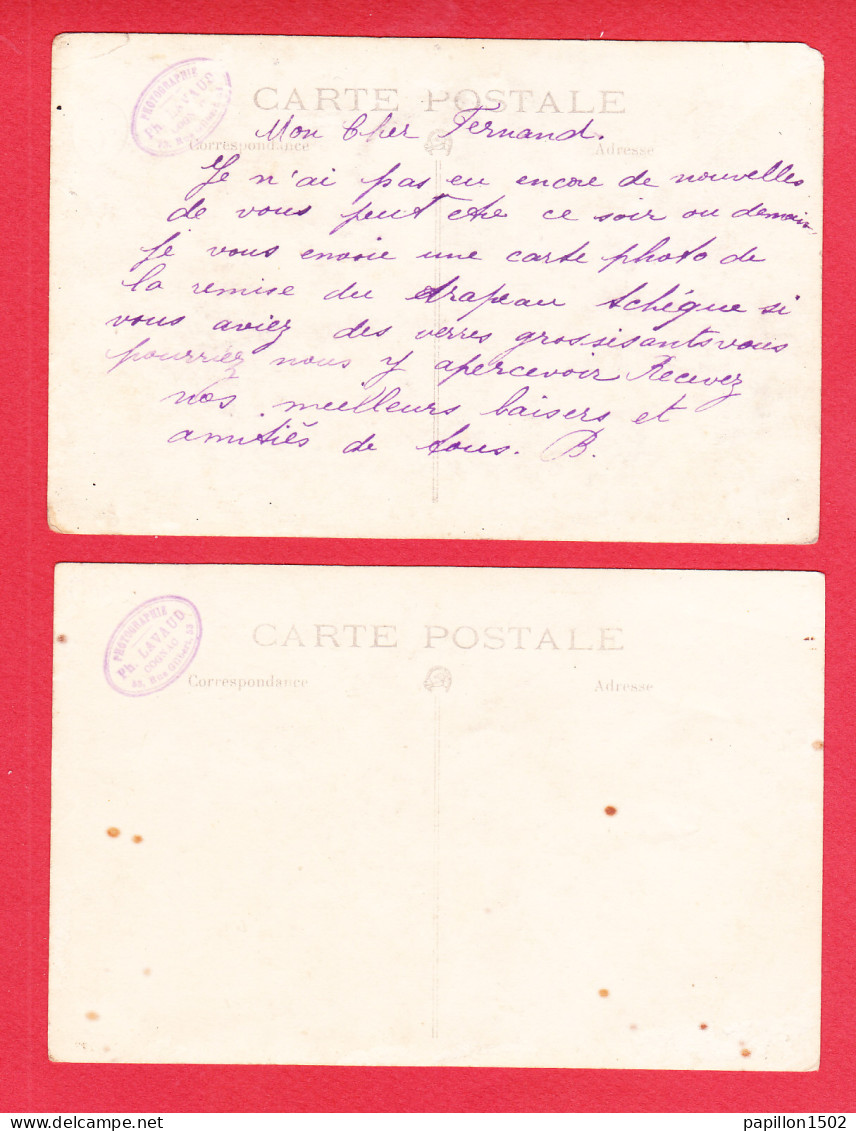 PHOTOGRAPHIE
Ph. LAVAUD
CARTE POSTALE
Correspondance
Adresse
Mon Cher Fernand.
Je n'ai pas eu encore de nouvelles
de vous peut etre ce soir ou demain
Je vous envoie une carte photo de
la remise du drapeau tchéque si
vous aviez des verres grossisants vous
pourriez nous y apercevoir Recevez
nos meilleurs baisers et
amitiés de tous. B.
PHOTOGRAPHIE
Ph. LAVAUD
COGNAC
CARTE POSTALE
Correspondance
Adresse
papillon1502